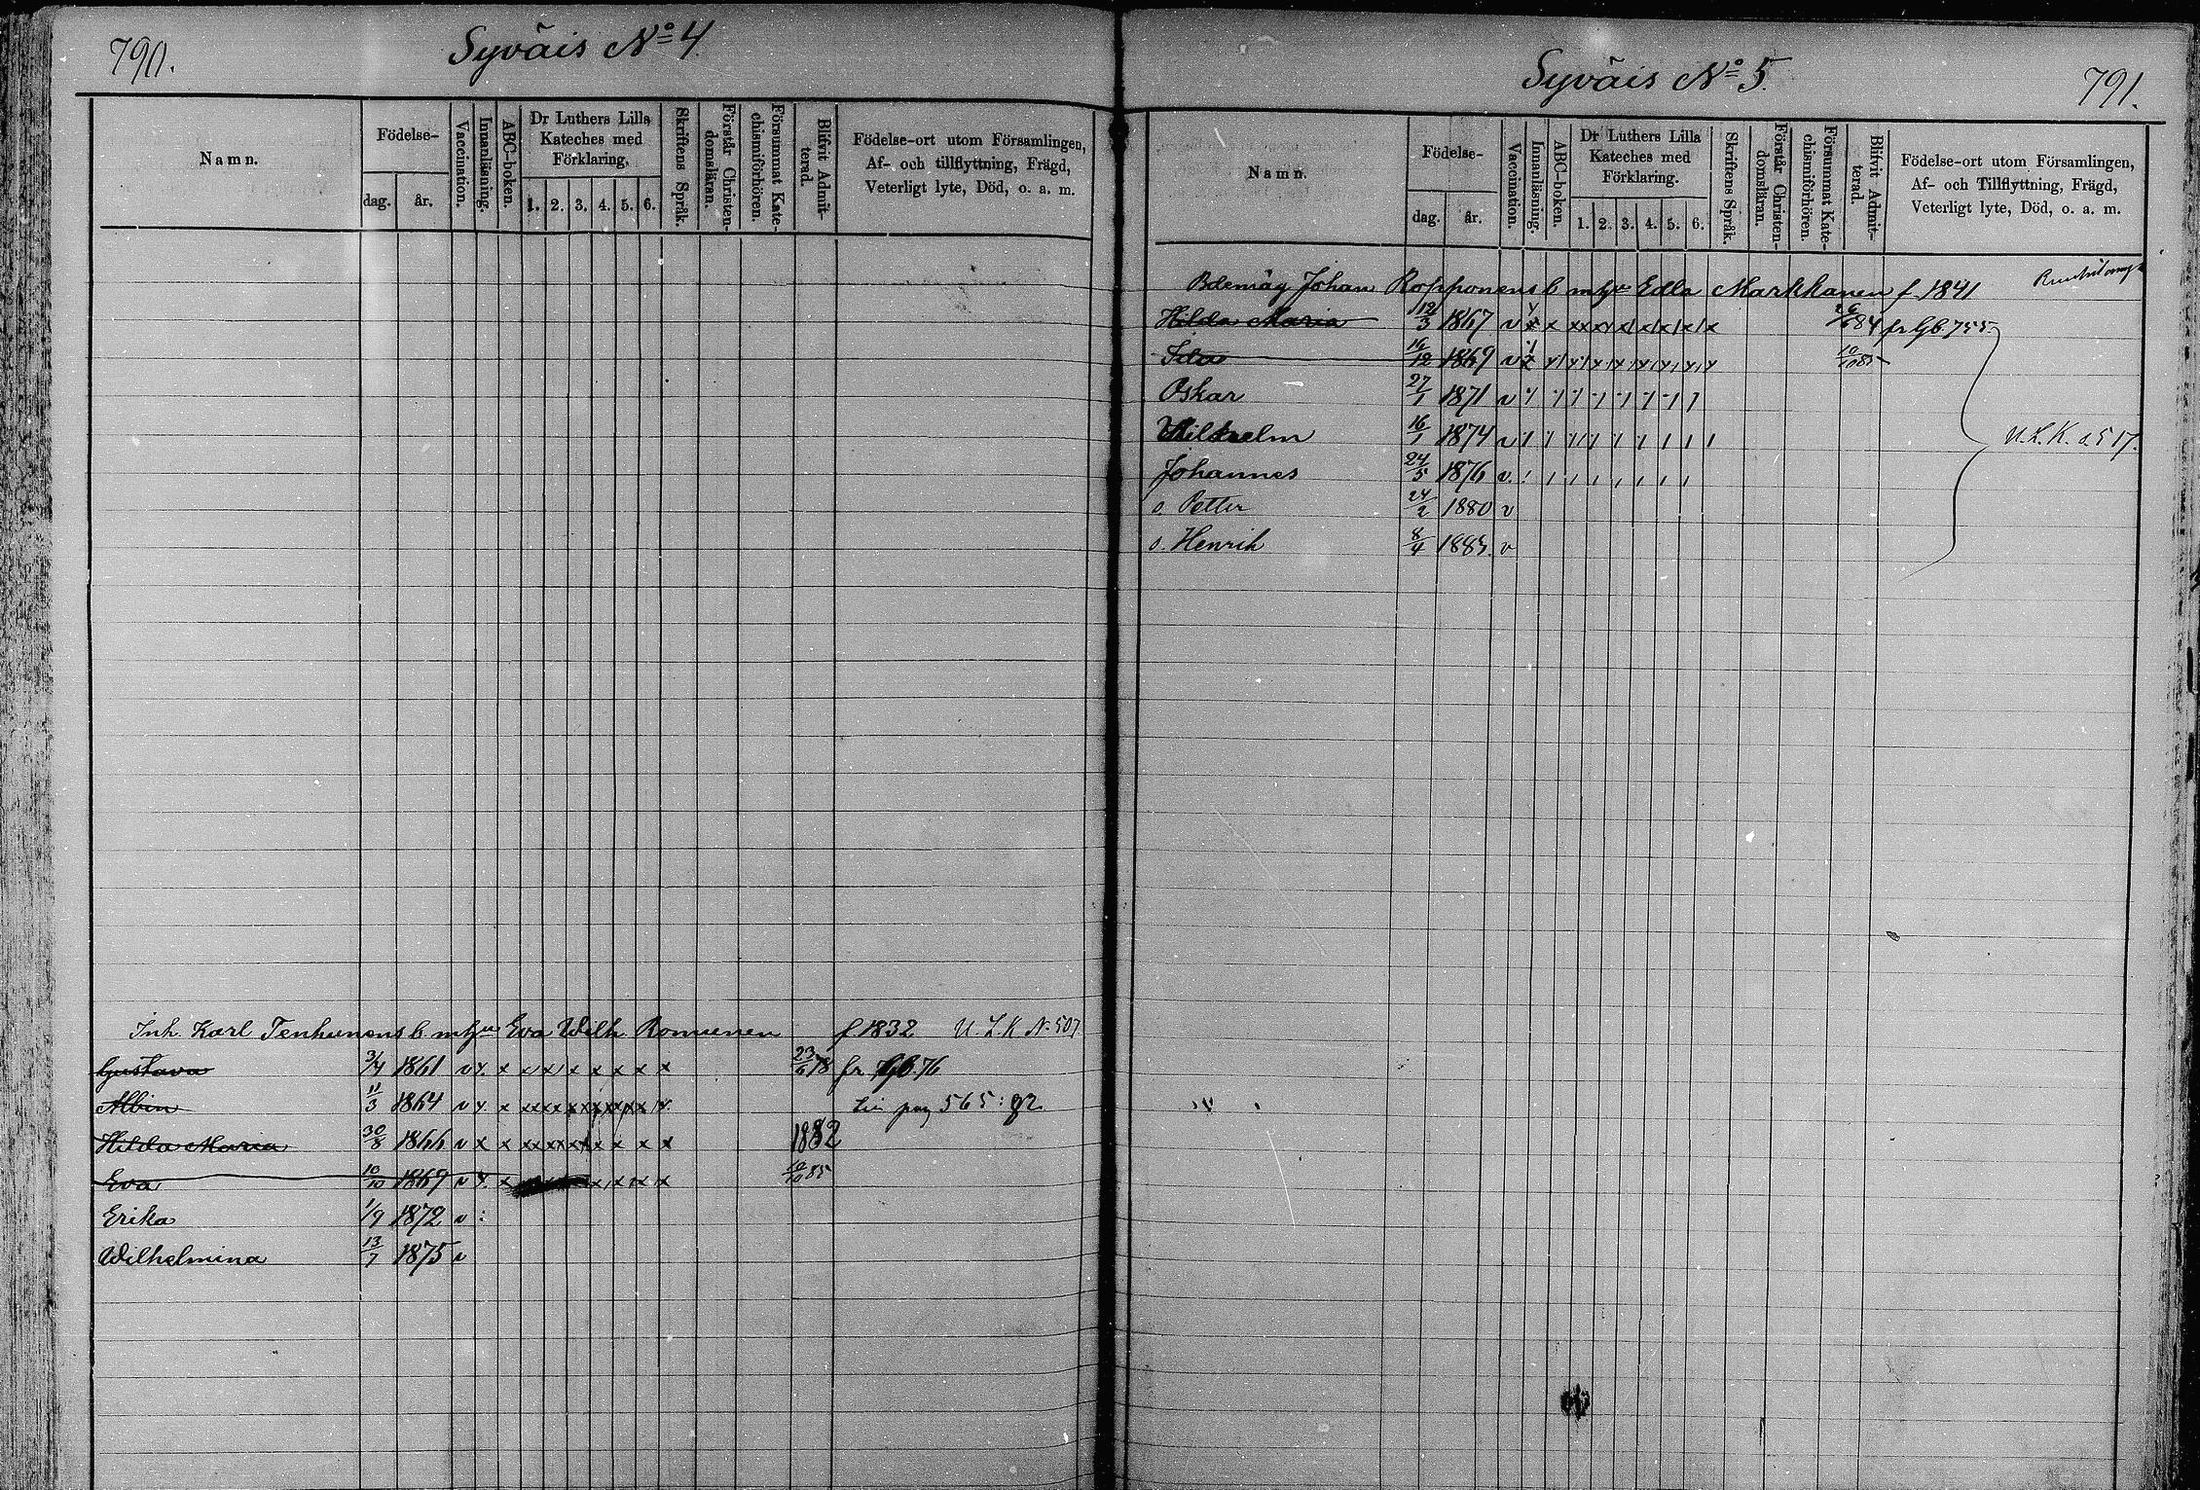 790.
Syväis No 4
Namn.
Födelse-
dag.
år.
Vaccination.
Innanläsning.
ABC-boken.
Dr Luthers Lilla
Kateches med
Förklaring,
1. 2. 3. 4. 5. 6.
Skriftens Språk.
Förstår Christen-
domsläran.
Försummat Kate-
chismiförhören.
Blifvit Admit-
terad.
Födelse-ort utom Församlingen,
Af- och tillflyttning, Frägd,
Veterligt lyte, Död, o. a. m.
Inh. Karl Tenhunens b m hu Eva Wilh Romunen f 1832 U. L. K No 507
Gustava 3/4 1861 v x x x x x x x x x 23/6 78 fr. 76
Albin 11/3 1864 v x x pag 565: 82
Hilda Maria 30/8 1866 v x x 1882
Eva 10/10 1869 v x x 10/10 85
Erika 1/9 1872 v
Wilhelmina 13/7 1875 v
Syväis No 5.
791.
Namn.
Födelse-
dag.
år.
Vaccination.
Innanläsning.
ABC-boken.
Dr Luthers Lilla
Kateches med
Förklaring.
1. 2. 3. 4. 5. 6.
Skriftens Språk.
Förstår Christen-
domsläran.
Försummat Kate-
chismiförhören.
Blifvit Admit-
terad.
Födelse-ort utom Församlingen,
Af- och Tillflyttning, Frägd,
Veterligt lyte, Död, o. a. m.
Johan Ropponens b m hu Edla Markkanen f. 1841
Hilda Maria 12/3 1867 v x x 84 fr Gb 755
Ida 16/12 1869 v x 10/10 85
Oskar 27/1 1871 v
Wilhelm 16/1 1874 v
U. L. K. s. 517.
Johannes 24/5 1876 v.
s. Petter 24/2 1880 v
s. Henrik 8/4 1885. v